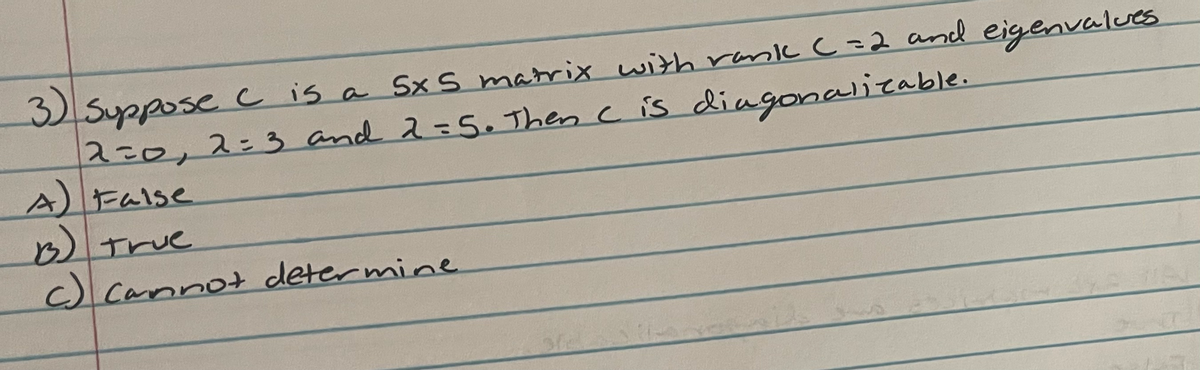 3) Suppose C is a 5x5 matrix with rank C = 2 and eigenvalues
λ=0, λ=3 and λ=5. Then C is diagonalizable.
A) False
B) True
C) Cannot determine